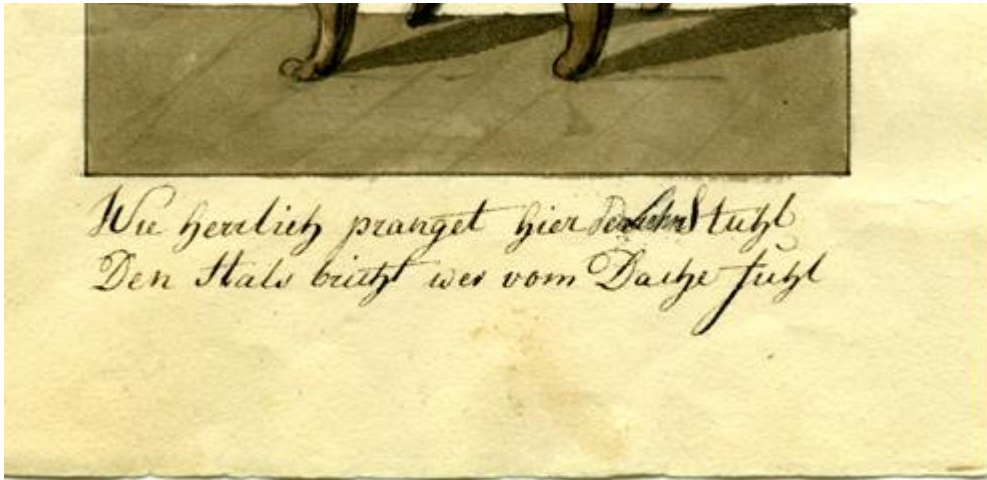 Wie herrlich pranget hier der Lehn Stuhl
Den Hals bricht wer vom Dache fuhl